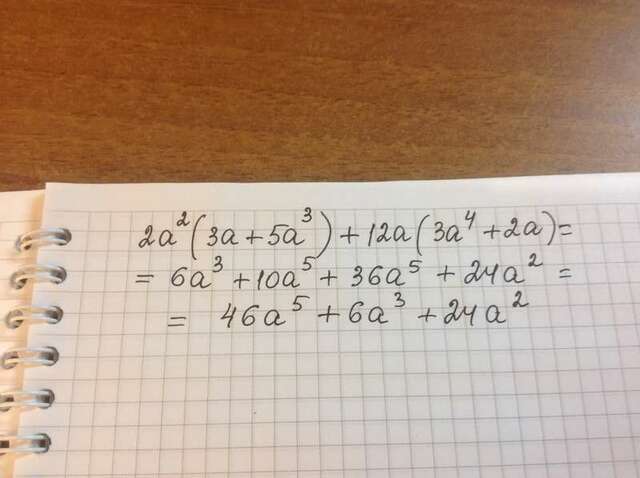 2a²(3a+5a³)+12a(3a⁴+2a)=
= 6a³+10a⁵+36a⁵+24a² =
= 46a⁵+6a³+24a²